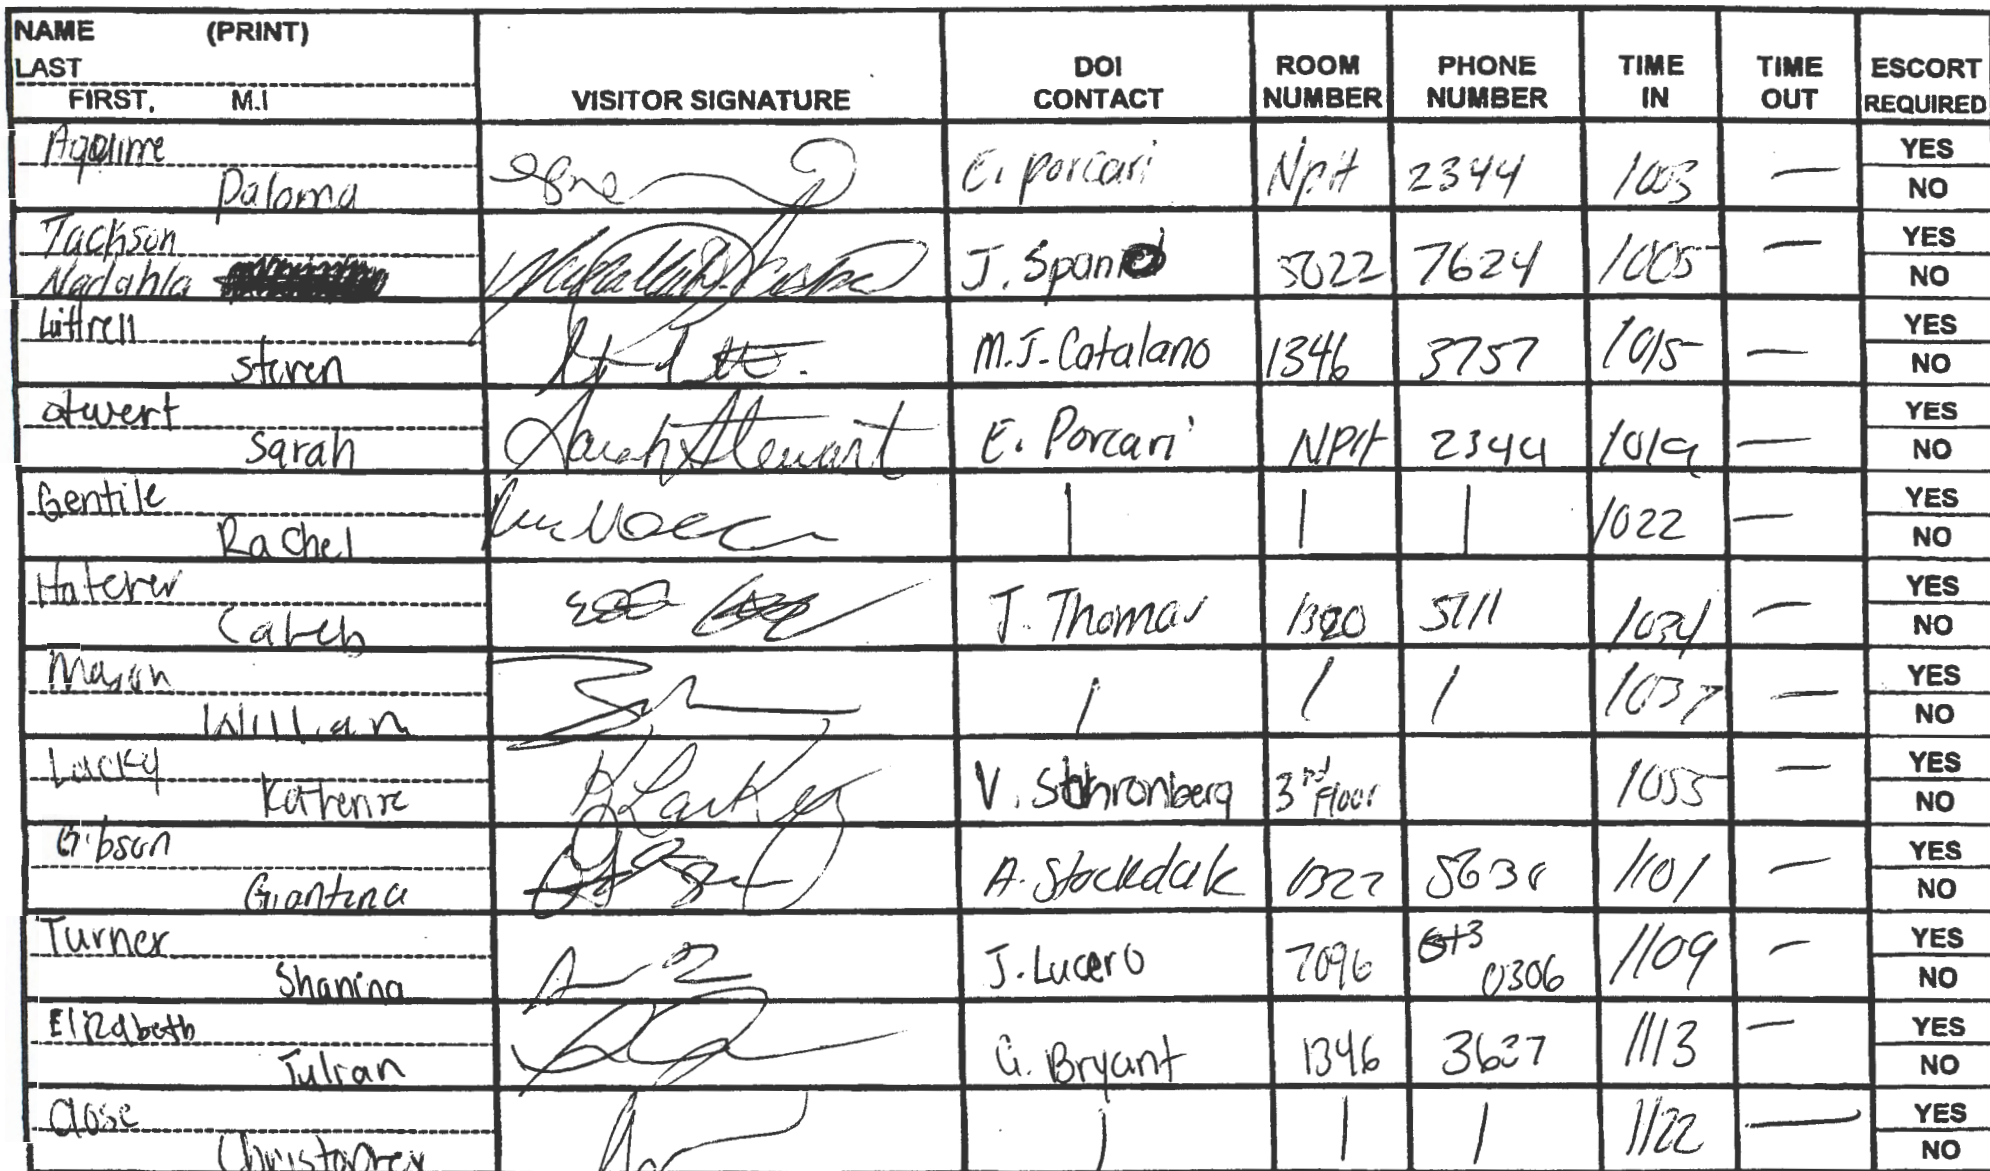 NAME (PRINT)
LAST
FIRST, M.I
VISITOR SIGNATURE
DOI CONTACT
ROOM NUMBER
PHONE NUMBER
TIME IN
TIME OUT
ESCORT REQUIRED
Paloma E. Porcari NPH 2344 1003 — YES NO
Jackson
Nadahla J. Span 5022 7624 1005 — YES NO
Littrell
Steven M.J. Catalano 1346 3757 1015 — YES NO
Stwert
Sarah Sarah Stewart E. Porcari NPH 2344 1019 — YES NO
Gentile
Rachel | | | 1022 — YES NO
Haterer
Caleb J. Thomas 1320 5711 1034 — YES NO
Mason
William | | | 1037 — YES NO
Lacky
Katherine K Larkey V. Stohronberg 3rd Floor 1055 — YES NO
Gibson
Giantina A. Stockdale 1322 1101 — YES NO
Turner
Shanina J. Lucero 7096 0306 1109 — YES NO
Elizabeth
Julian G. Bryant 1346 3637 1113 — YES NO
Close
Christopher | | | 1122 — YES NO